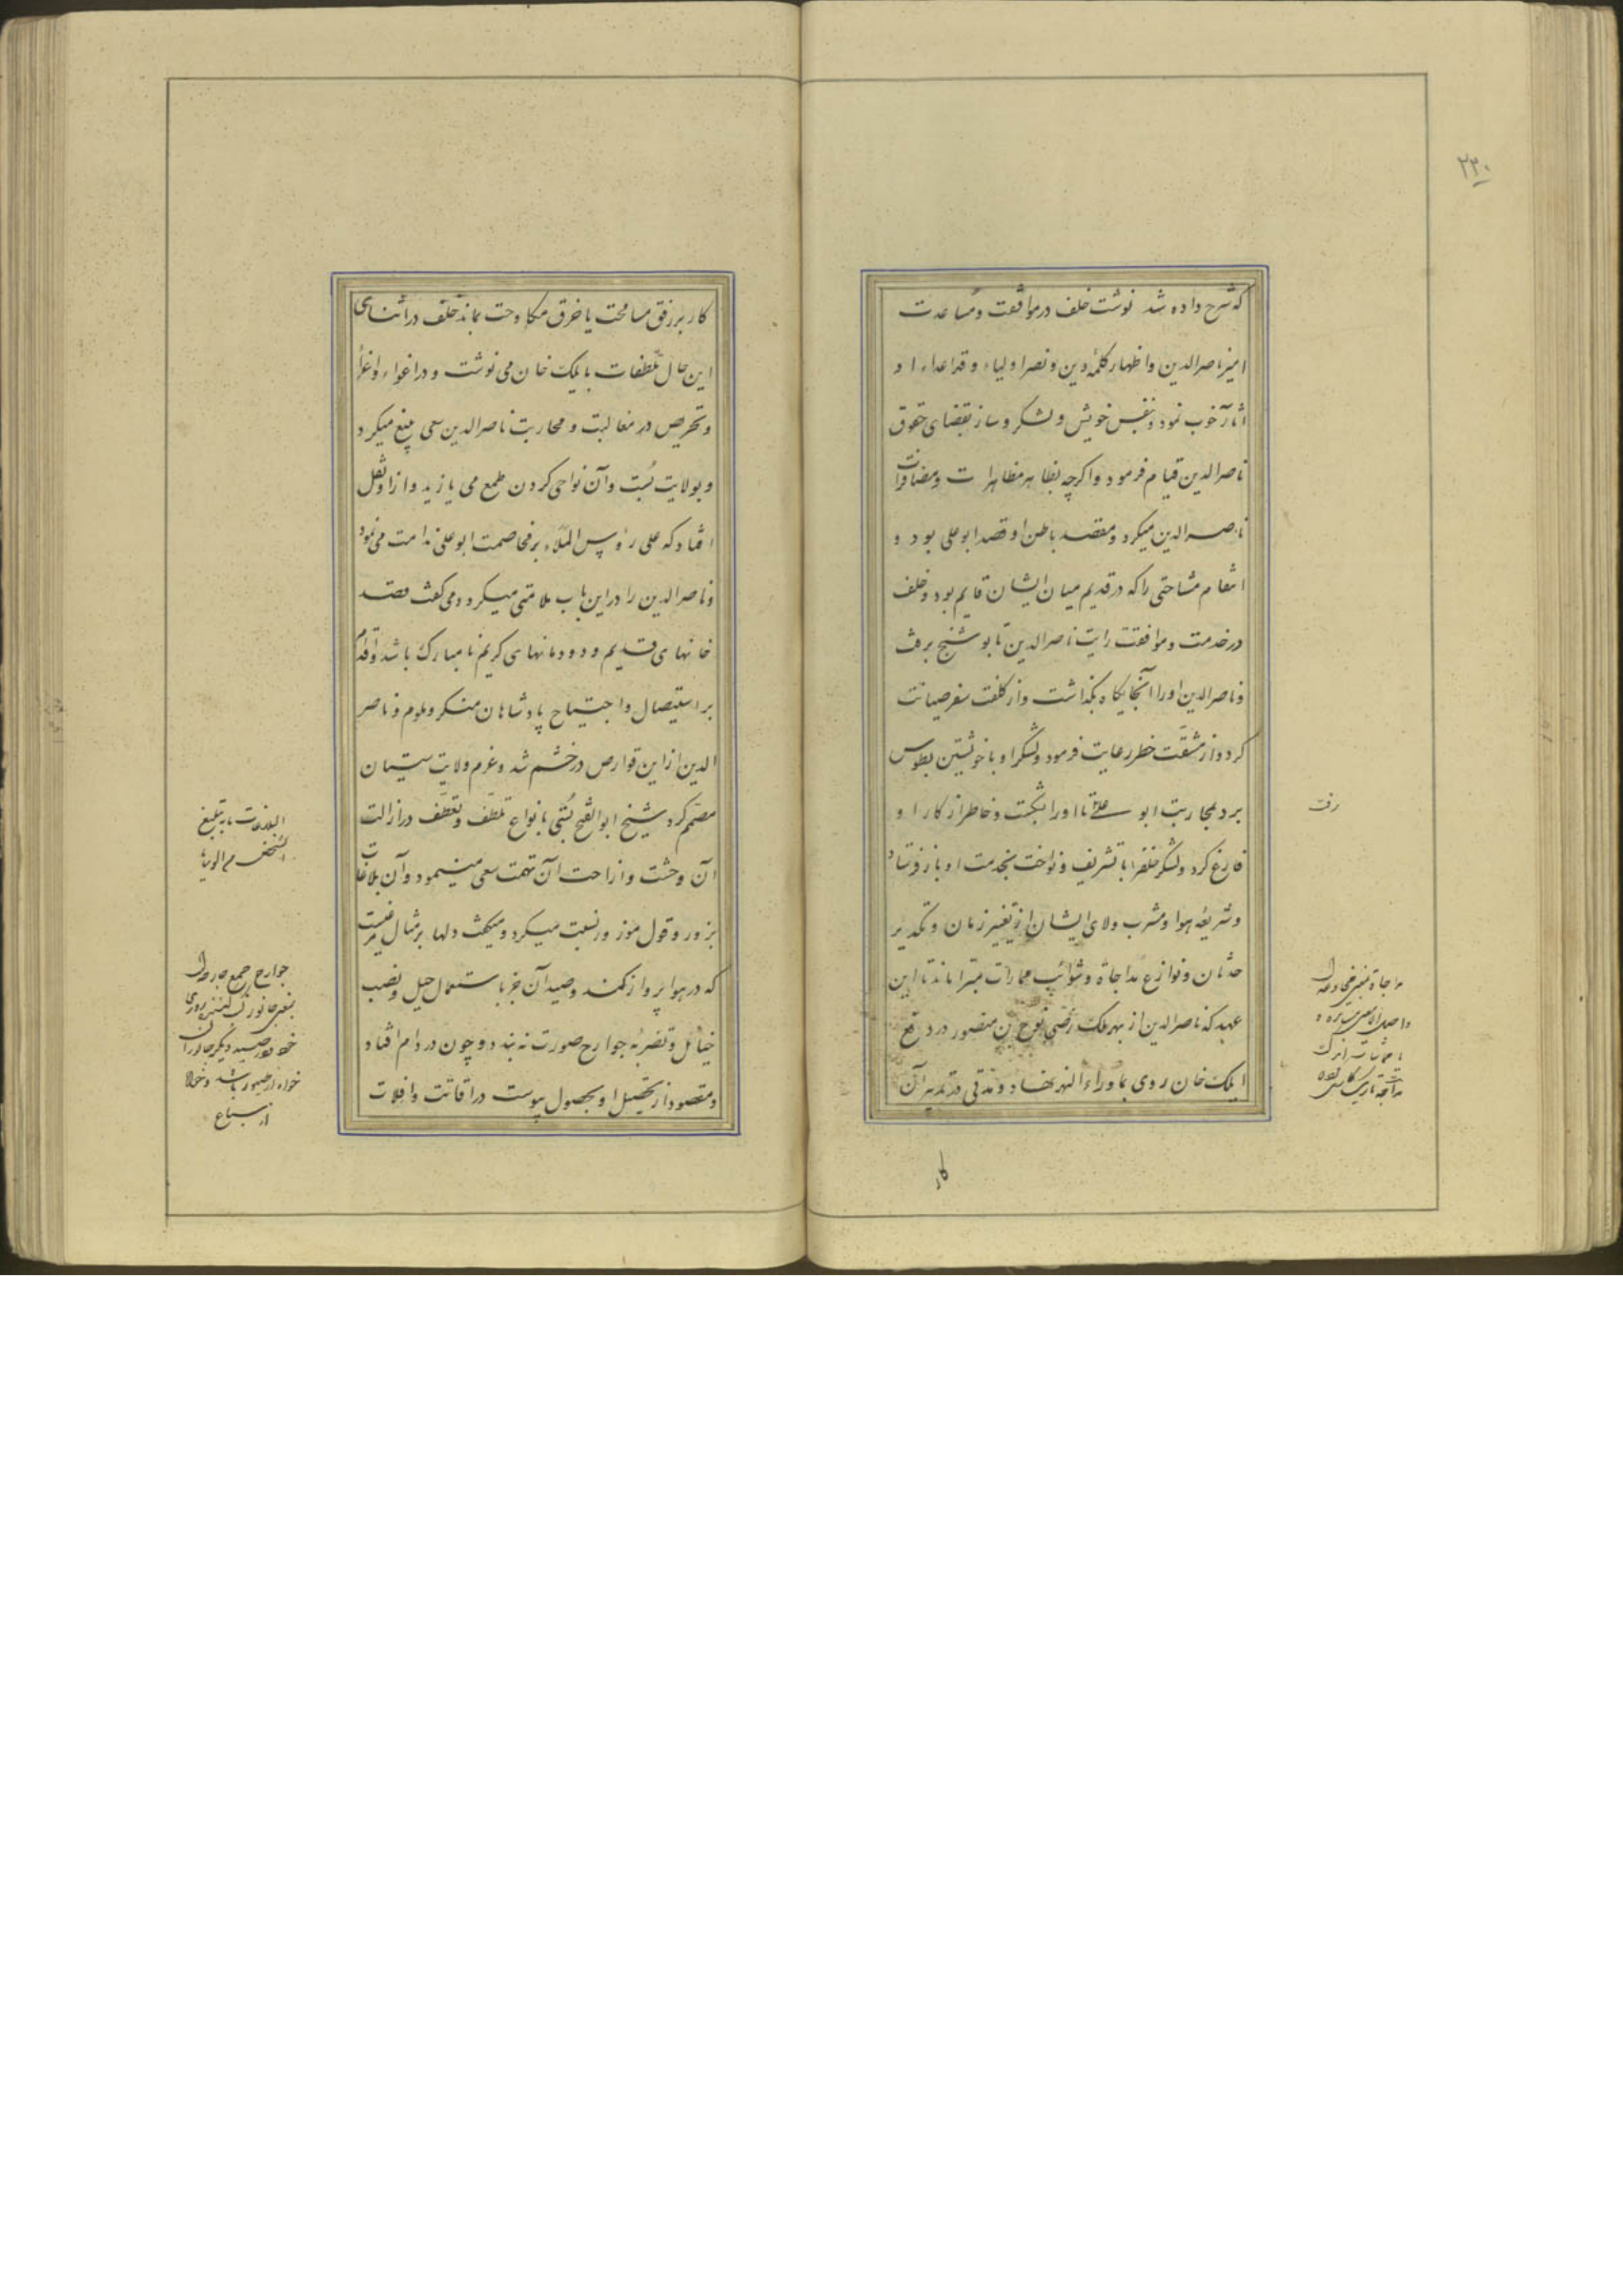 ۲۳۰
که شرح داده شد نوشت خلف در موافقت و مساعدت
امیر ناصرالدین و اظهار کلمهٔ دین و نصر اولیاء و قدا عداء او
آثار خوب نمود و بنفس خویش و لشکر و ساز بقضای حقوق
ناصرالدین قیام فرمود و اگرچه بظاهر مظاهرات و مضافرات
ناصرالدین میکرد و مقصد باطن او قصد ابوعلی بود و
انتقام مشاحتی را که در قدیم میان ایشان قایم بود و خلف
در خدمت و موافقت رایت ناصرالدین تا بوشنج برفت
و ناصرالدین او را آنجایگاه بگذاشت و از کلفت سفر صیانت
کرد و از مشقت خطر رعایت فرمود و لشکر او با خویشتن بطوس
برد بمحاربت ابو علی تا او را بشکست و خاطر از کار او
فارغ کرد و لشکر خلف را با تشریف و نواخت بخدمت او باز فرستاد
و شریعهٔ هوا و مشرب ولای ایشان از تغییر زمان و تکدیر
حدثان و نوازع مداجاة و شوائب ممارات مبرا ماند تا این
عهد که ناصرالدین از بهر ملک رضی نوح بن منصور در دفع
ایلک خان روی بماوراءالنهر نهاد و مدتی در تدبیر آن
رفت
کار
کار بر رفق مسامحت یا خرق مکاوحت بماند خلف در اثنای
این حال تلطفات بایلک خان می نوشت و در اغواء و اغراء
و تحریص در مغالبت و محاربت ناصرالدین سعی بلیغ میکرد
و بولایت بست و آن نواحی کردن طمع می یازید و از او نقل
افتاد که علی رؤس الملاء بر مخاصمت ابوعلی ندامت می نمود
و ناصرالدین را در این باب ملامتی میکرد و می گفت قصد
خانهای قدیم و دودمانهای کریم نامبارک باشد و اقدام
بر استیصال و اجتیاح پادشاهان منکر و ملوم و ناصر
الدین از این قوارص در خشم شد و عزم ولایت سیستان
مصمم کرد شیخ ابوالفتح بستی بانواع تلطف و تعطف در ازالت
آن وحشت و ازاحت آن تهمت سعی مینمود و آن بلاغات
بزور و قول مزور نسبت میکرد و میگفت دلها بر مثال مرغیست
که در هوا پرواز کند و صید آن جز باستعمال حیل و نصب
حبائل و تضریهٔ جوارح صورت نه بندد و چون در دام افتاد
و مقصود از تحصیل او بحصول پیوست در اقاتت و افلات
جوارح جمع جارحه